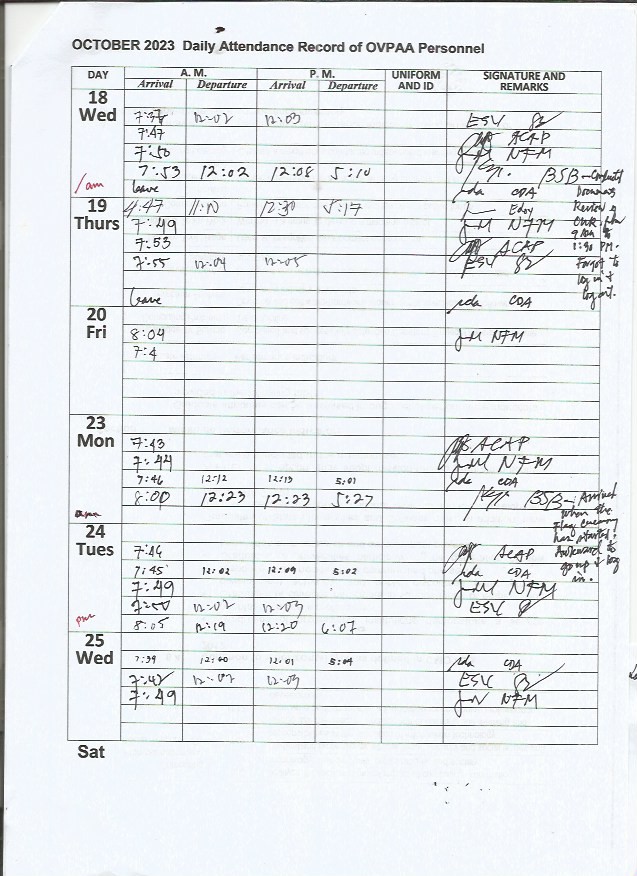 OCTOBER 2023 Daily Attendance Record of OVPAA Personnel
DAY A. M. P. M. UNIFORM AND ID SIGNATURE AND REMARKS
Arrival Departure Arrival Departure
18 Wed
7:37 12:02 12:03 ESU
7:47 ACAP
7:50 NFM
7:53 12:02 12:08 5:10 BSB
/am leave CDA
19 Thurs
4:47 12:30 5:17 Edoy
7:49 NFM
7:53 ACAP
7:55 12:04 12:05 ESU
Forgot to log in & log out.
leave CDA
20 Fri
8:04 NFM
7:4
23 Mon
7:43 ACAP
7:44 NFM
7:46 12:12 12:13 5:01 CDA
8:00 12:23 12:23 5:27 BSB - Arrived when the flag ceremony has started. Awkward to go up & log in.
24 Tues
7:46 ACAP
7:45 12:02 12:09 5:02 CDA
7:49 NFM
7:50 12:02 12:03 ESU
pm 8:05 12:19 12:20 6:07
25 Wed
7:39 12:40 12:01 5:04 CDA
7:42 12:02 12:03 ESU
7:49 NFM
Sat